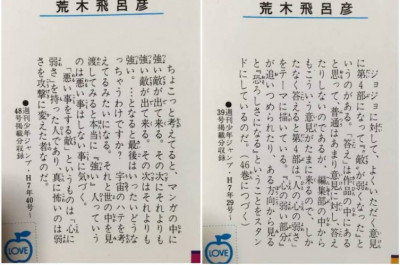 荒木飛呂彦
ジョジョに対して、よくいただく意見
に第4部になって「敵が弱くなった」と
いうのがある。「答え」は作品の中にある
と思って、普通はあまり意見に対し答え
たりしないのであるが、編集部の中から
もこういう意見が来るので、し
たなく答えると第4部は「人の心の弱さ」
をテーマに描いている。「心の弱い部分」
が追いつめられたり、ある方向から見る
と「恐ろしさになる」ということをスタン
ドにしているのだ。(46巻につづく)
●週刊少年ジャンプ・H7年29号〜
39号掲載分収録
LOVE
荒木飛呂彦
ちょこっと考えてると、マンガの中に
強い敵が出て来る。その次にそれよりも
強い敵が出て来る。その次はそれよりも
強い。…となると最後はいったいどうな
っちゃうわけですか? 宇宙のハテを考
えてるみたいになる。それと世の中を見
渡してみると本当に「強い」人っていう
のは悪い事はしない事に気づく。
「悪い事をする敵」というものは「心に
弱さ」を持った人であり、真に怖いのは弱
さを攻撃に変えた者なのだ。
●週刊少年ジャンプ・H7年40号〜
48号掲載分収録
LOVE